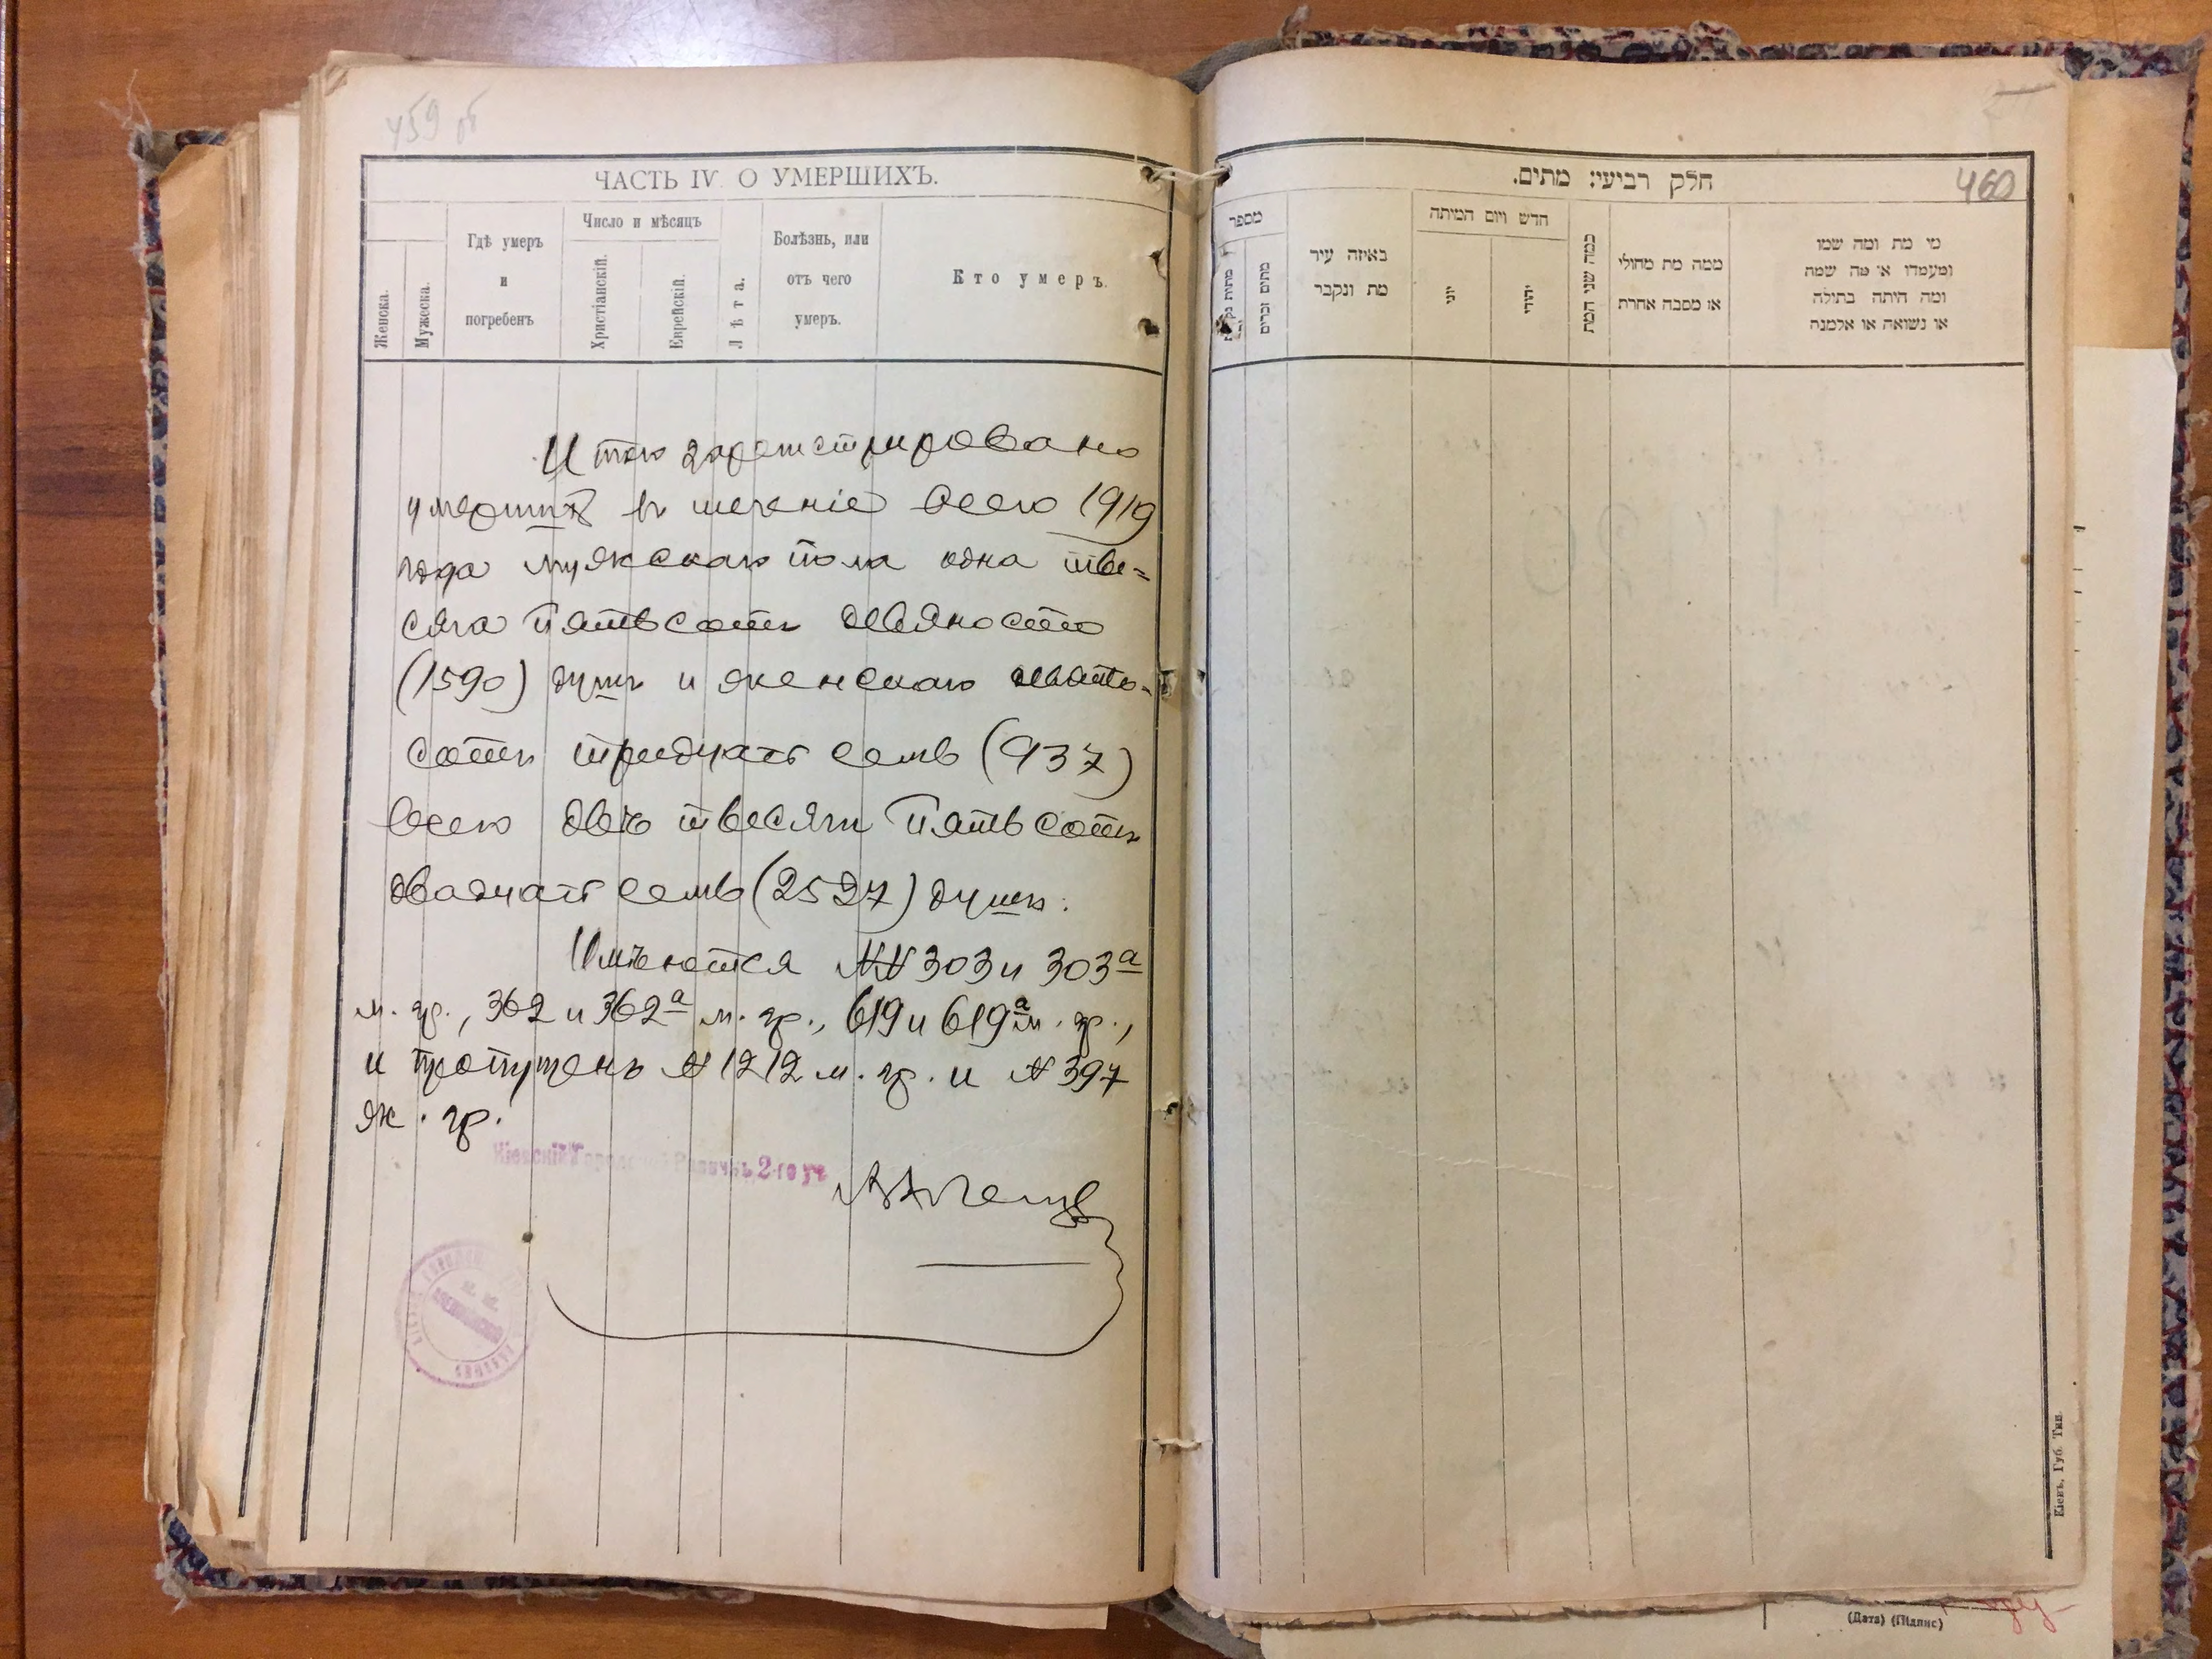 459 об
ЧАСТЬ IV. О УМЕРШИХЪ.
Женска.
Мужеска.
Гдѣ умеръ
и
погребенъ
Число и мѣсяцъ
Христіанскій.
Еврейскій.
Лѣта.
Болѣзнь, или
отъ чего
умеръ.
Кто умеръ.
Итого зарегистрировано
умершихъ въ теченіе всего 1919
года мужскаго пола одна ты=
сяча пятьсотъ девяносто
(1590) душъ и женскаго девять-
сотъ тридцать семь (937)
всего двѣ тысячи пятьсотъ
двадцать семь (2527) душъ.
Имѣются №№ 303 и 303а
м. гр., 362 и 362а м. гр., 619 и 619а м. гр.,
и пропущенъ № 1212 м. гр. и № 397
ж. гр.
Кіевскій Городской Раввинъ 2-го уч
חלק רביעי: מתים.
460
מספר
מתים זכרים
באיזה עיר
מת ונקבר
חדש ויום המיתה
יוני
יהודי
כמה שני המת
ממה מת מחולי
או מסבה אחרת
מי מת ומה שמו
ומעמדו או מה שמה
ומה היתה בתולה
או נשואה או אלמנה
Кіевъ, Губ. Тип.
(Дата) (Підпис)